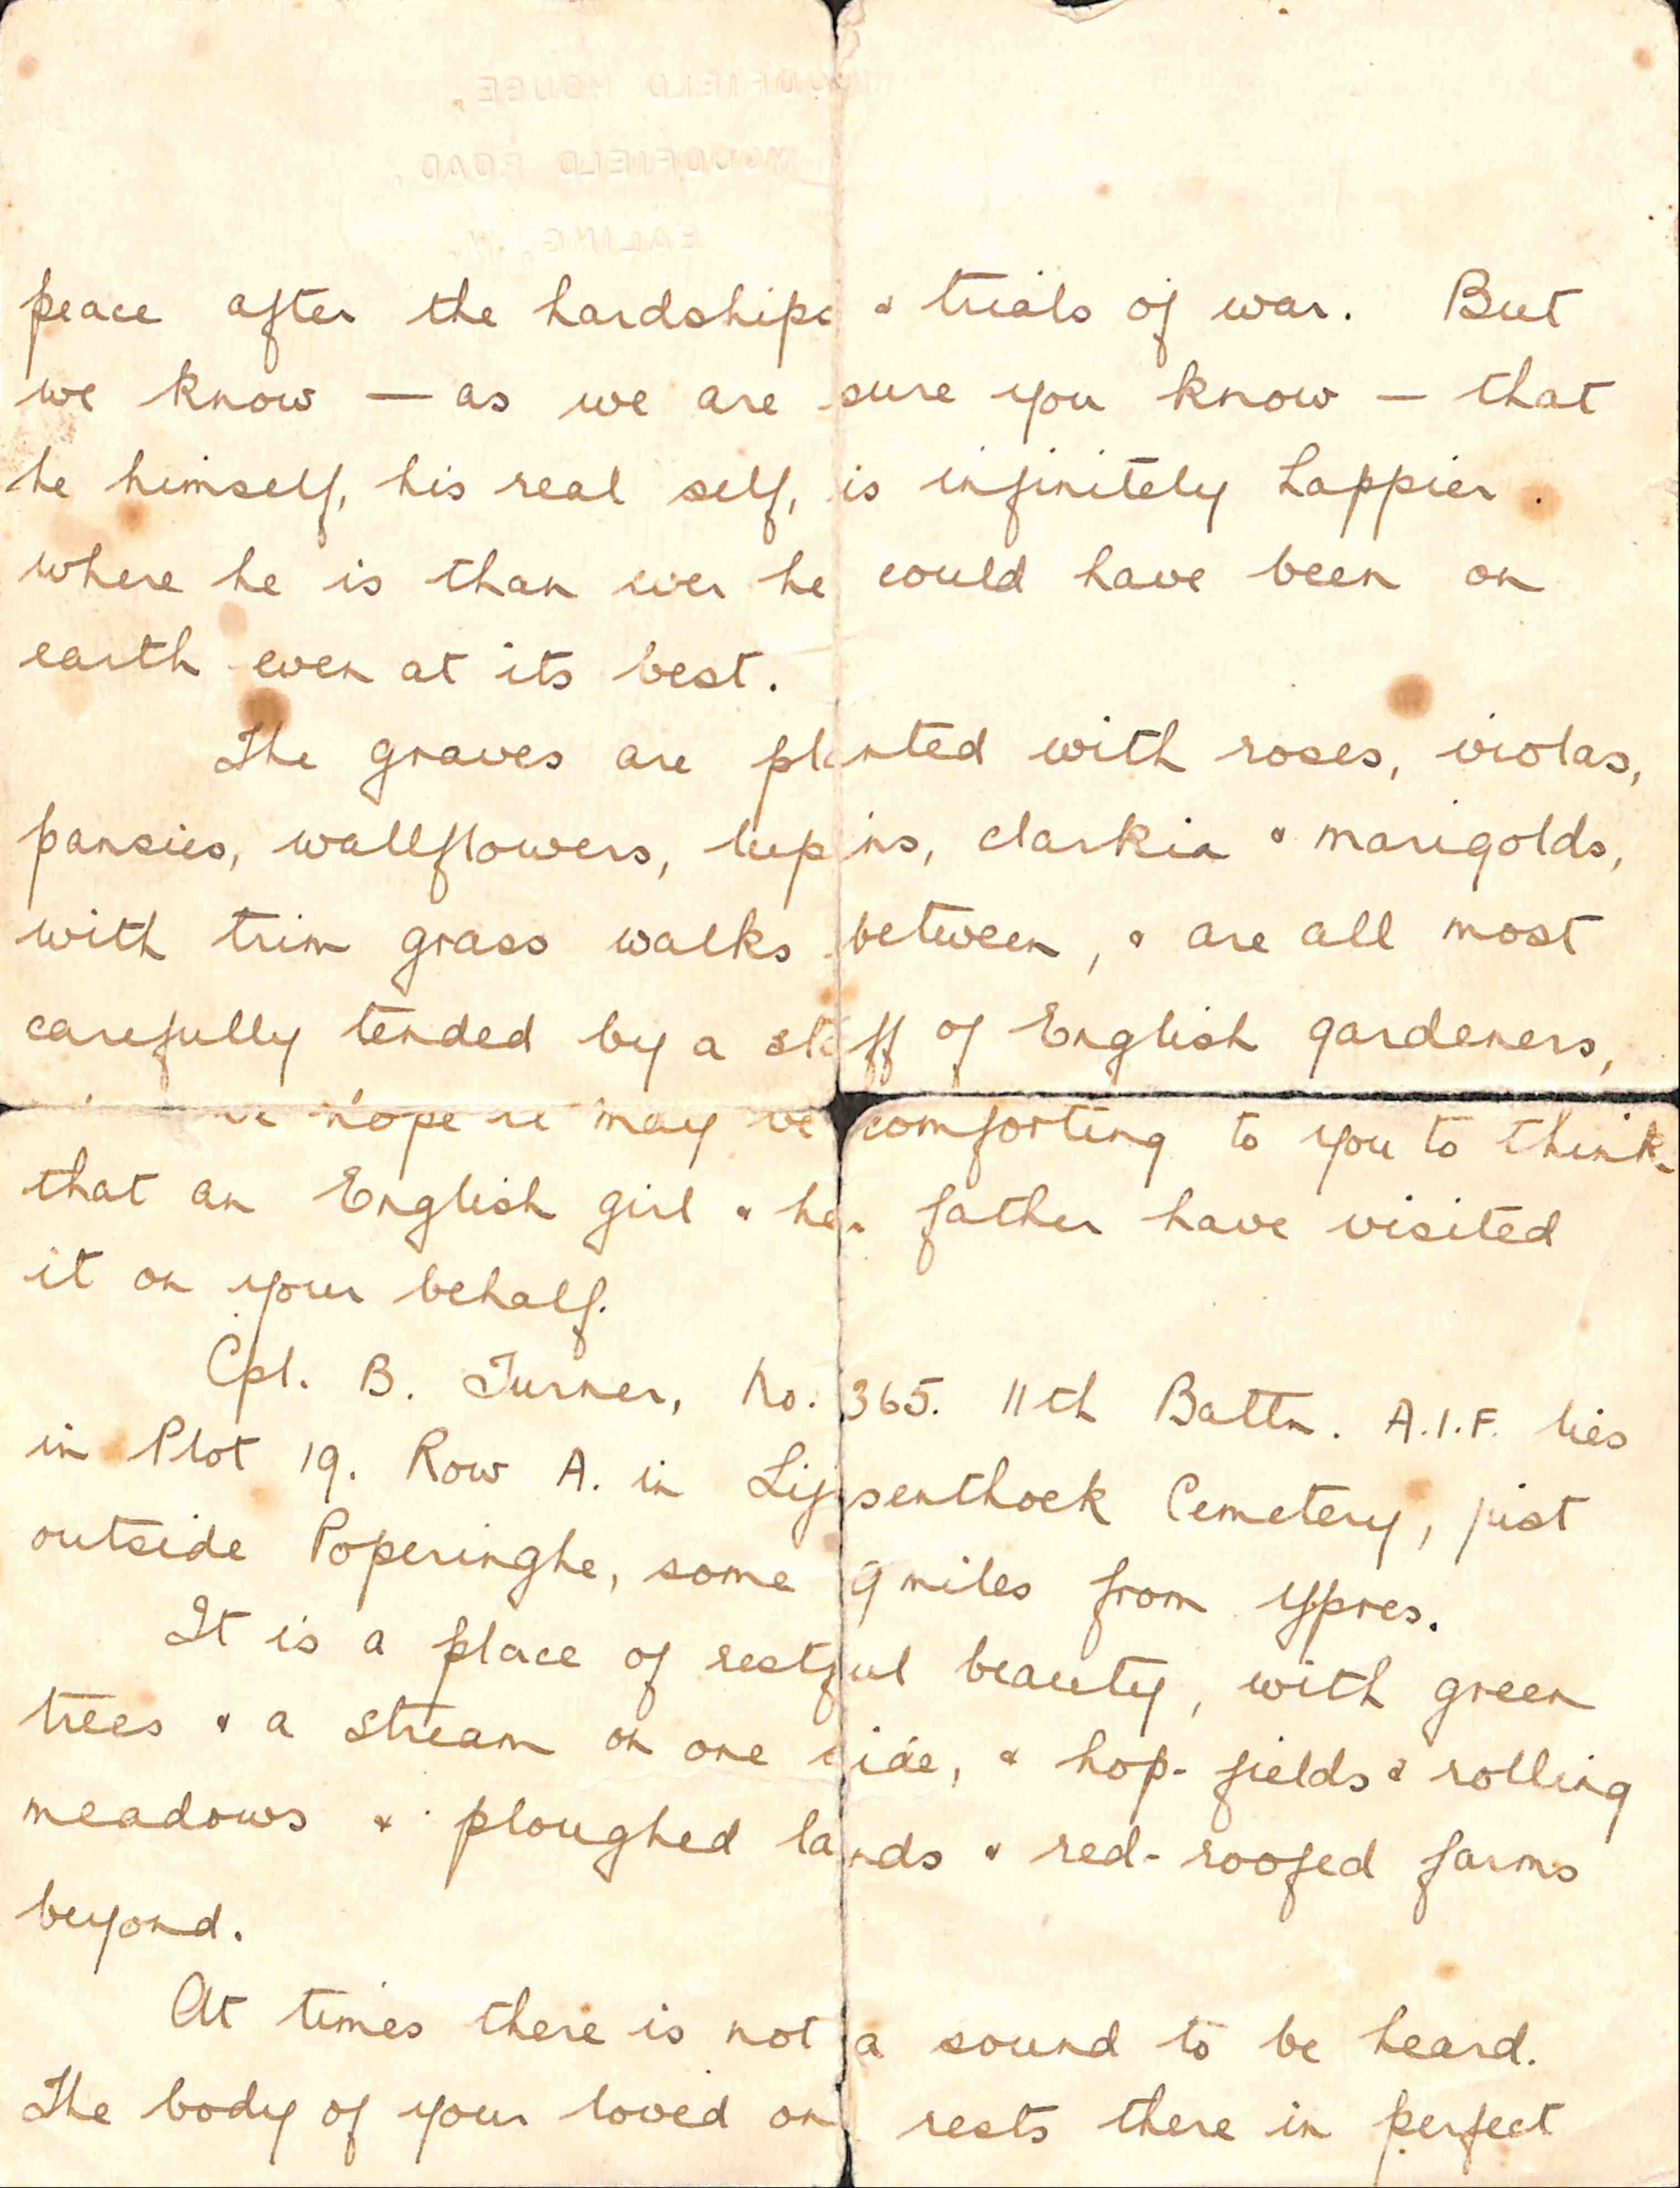 WOODFIELD HOUSE,
WOODFIELD ROAD,
EALING, W.
peace after the hardships & trials of war. But
we know — as we are sure you know — that
he himself, his real self, is infinitely happier
where he is than ever he could have been on
earth even at its best.
The graves are planted with roses, violas,
pansies, wallflowers, lupins, clarkia & marigolds,
with trim grass walks between, & are all most
carefully tended by a staff of English gardeners,
we hope it may be comforting to you to think
that an English girl & her father have visited
it on your behalf.
Cpl. B. Turner, No. 365. 11th Battn. A.I.F. lies
in Plot 19. Row A. in Lijssenthoek Cemetery, just
outside Poperinghe, some 9 miles from Ypres.
It is a place of restful beauty, with green
trees & a stream on one side, & hop-fields & rolling
meadows & ploughed lands & red-roofed farms
beyond.
At times there is not a sound to be heard.
The body of your loved one rests there in perfect